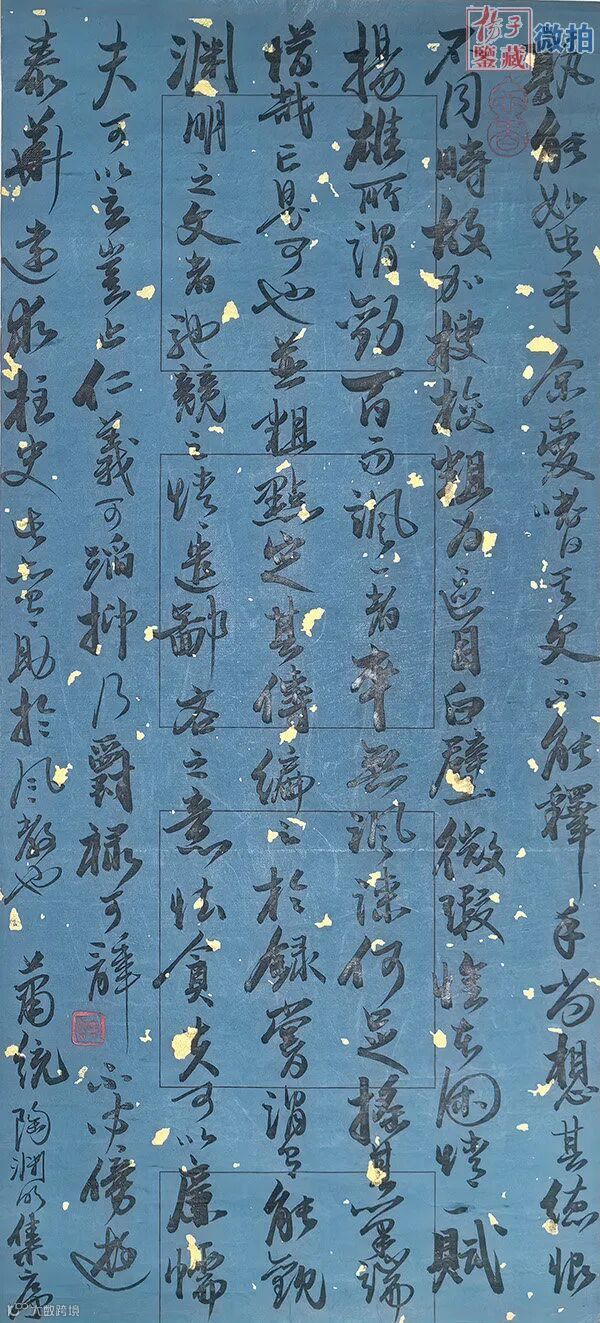 孰能如此乎余愛嗜其文不能釋手尚想其德恨
不同時故加搜校粗為區目白璧微瑕惟在閑情一賦
揚雄所謂勸百而諷一者卒無諷諫何足摇其筆端
惜哉亡是可也並粗點定其傳編之於録嘗謂有能觀
渊明之文者馳競之情遣鄙吝之意祛貪夫可以廉懦
夫可以立豈止仁義可蹈抑乃爵禄可辭不必傍游
泰華遠求柱史此亦有助於風教也 蕭統 陶渊明集序
扬子鑒藏
微拍
大数跨境